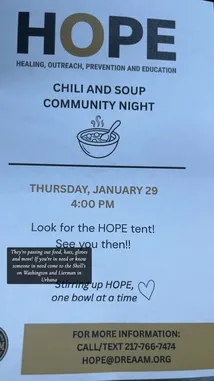 HOPE
HEALING, OUTREACH, PREVENTION AND EDUCATION
CHILI AND SOUP
COMMUNITY NIGHT
THURSDAY, JANUARY 29
4:00 PM
Look for the HOPE tent!
See you then!!
They're passing out food, hats, gloves
and more! If you're in need or know
someone in need come to the Shell's
on Washington and Lierman in
Urbana
Stirring up HOPE,
one bowl at a time
FOR MORE INFORMATION:
CALL/TEXT 217-766-7474
HOPE@DREAAM.ORG